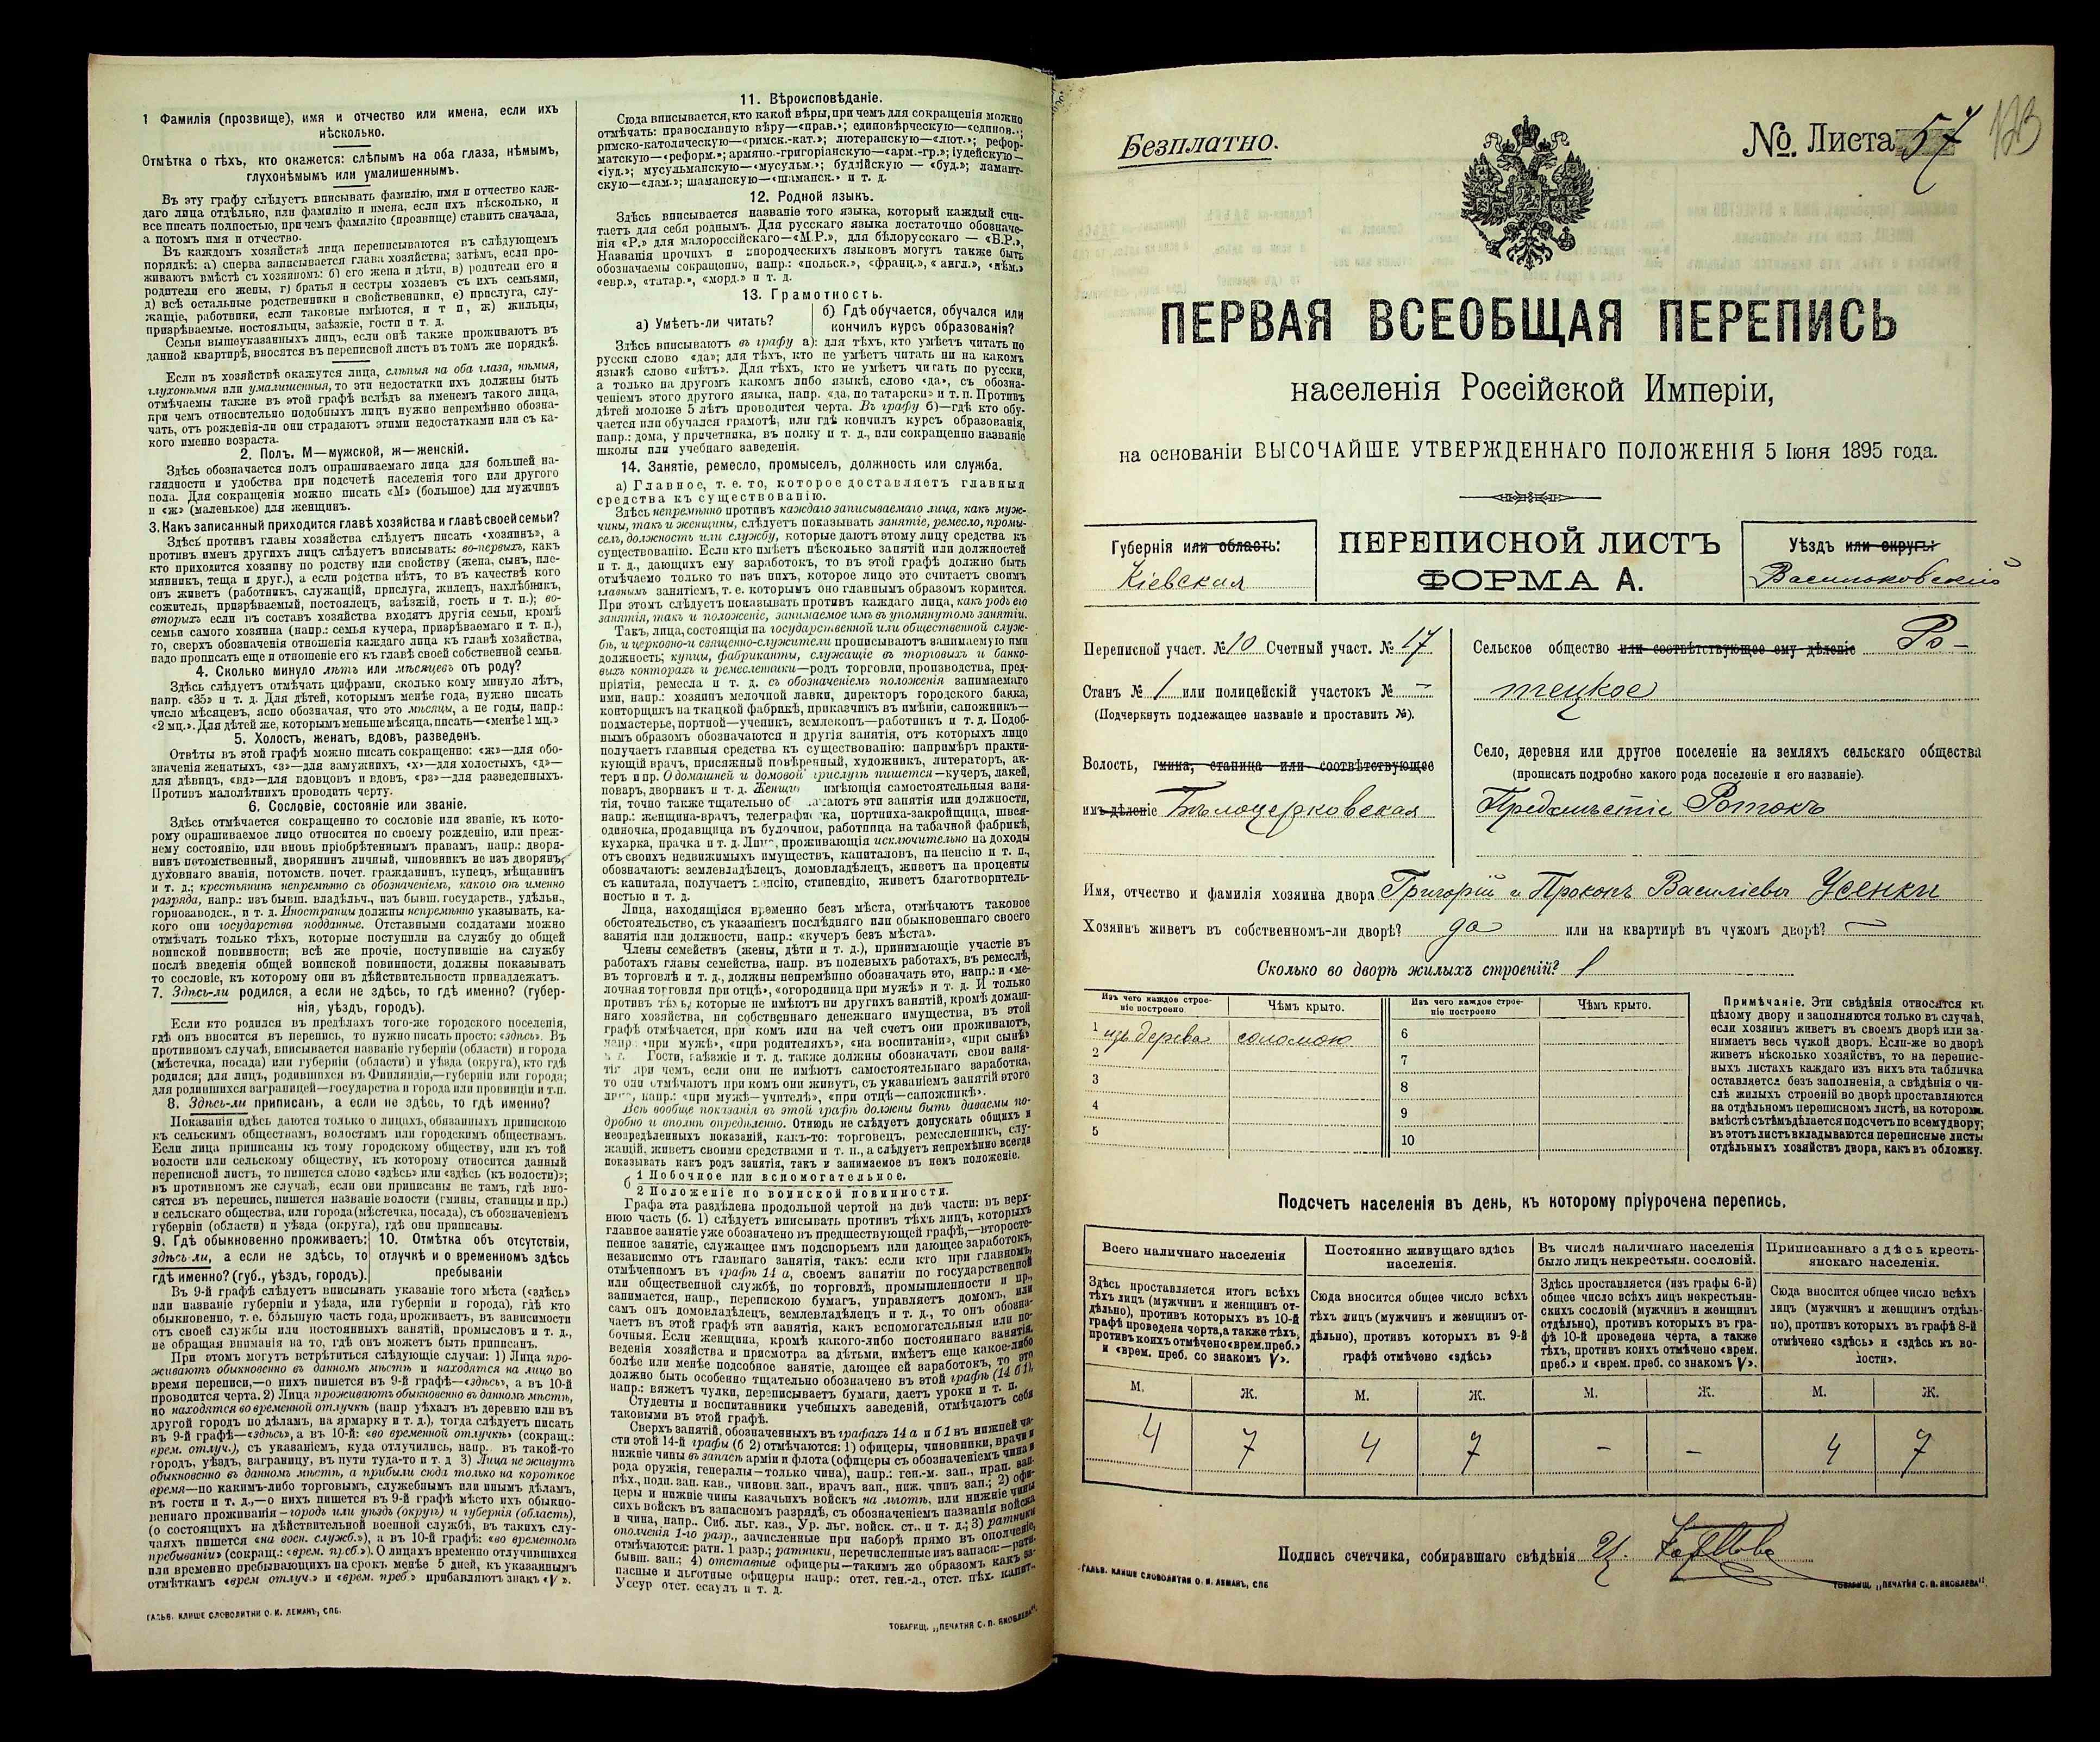 1 Фамилія (прозвище), имя и отчество или имена, если ихъ
нѣсколько.
Отмѣтка о тѣхъ, кто окажется: слѣпымъ на оба глаза, нѣмымъ,
глухонѣмымъ или умалишеннымъ.
Въ эту графу слѣдуетъ вписывать фамилію, имя и отчество каж-
даго лица отдѣльно, или фамилію и имена, если ихъ нѣсколько, и
все писать полностью, при чемъ фамилію (прозвище) ставить сначала,
а потомъ имя и отчество.
Въ каждомъ хозяйствѣ лица переписываются въ слѣдующемъ
порядкѣ: а) сперва записывается глава хозяйства; затѣмъ, если про-
живаютъ вмѣстѣ съ хозяиномъ: б) его жена и дѣти, в) родители его и
родители его жены, г) братья и сестры хозяевъ съ ихъ семьями,
д) всѣ остальные родственники и свойственники, е) прислуга, слу-
жащіе, работники, если таковые имѣются, и т п, ж) жильцы,
призрѣваемые, постояльцы, заѣзжіе, гости и т. д.
Семьи вышеуказанныхъ лицъ, если онѣ также проживаютъ въ
данной квартирѣ, вносятся въ переписной листъ въ томъ же порядкѣ.
Если въ хозяйствѣ окажутся лица, слѣпыя на оба глаза, нѣмыя,
глухонѣмыя или умалишенныя, то эти недостатки ихъ должны быть
отмѣчаемы также въ этой графѣ вслѣдъ за именемъ такого лица,
при чемъ относительно подобныхъ лицъ нужно непремѣнно обозна-
чать, отъ рожденія-ли они страдаютъ этими недостатками или съ ка-
кого именно возраста.
2. Полъ. М—мужской, ж—женскій.
Здѣсь обозначается полъ опрашиваемаго лица для большей на-
глядности и удобства при подсчетѣ населенія того или другого
пола. Для сокращенія можно писать «М» (большое) для мужчинъ
и «ж» (маленькое) для женщинъ.
3. Какъ записанный приходится главѣ хозяйства и главѣ своей семьи?
Здѣсь противъ главы хозяйства слѣдуетъ писать «хозяинъ», а
противъ именъ другихъ лицъ слѣдуетъ вписывать: во-первыхъ, какъ
кто приходится хозяину по родству или свойству (жена, сынъ, пле-
мянникъ, теща и друг.), а если родства нѣтъ, то въ качествѣ кого
онъ живетъ (работникъ, служащій, прислуга, жилецъ, нахлѣбникъ,
сожитель, призрѣваемый, постоялецъ, заѣзжій, гость и т. п.); во-
вторыхъ если въ составъ хозяйства входятъ другія семьи, кромѣ
семьи самого хозяина (напр.: семья кучера, призрѣваемаго и т. п.),
то, сверхъ обозначенія отношенія каждаго лица къ главѣ хозяйства,
надо прописать еще и отношеніе его къ главѣ своей собственной семьи.
4. Сколько минуло лѣтъ или мѣсяцевъ отъ роду?
Здѣсь слѣдуетъ отмѣчать цифрами, сколько кому минуло лѣтъ,
напр. «35» и т. д. Для дѣтей, которымъ менѣе года, нужно писать
число мѣсяцевъ, ясно обозначая, что это мѣсяцы, а не годы, напр.:
«2 мц.». Для дѣтей же, которымъ меньше мѣсяца, писать—«менѣе 1 мц.»
5. Холостъ, женатъ, вдовъ, разведенъ.
Отвѣты въ этой графѣ можно писать сокращенно: «ж»—для обо-
значенія женатыхъ, «з»—для замужнихъ, «х»—для холостыхъ, «д»—
для дѣвицъ, «вд»—для вдовцовъ и вдовъ, «рз»—для разведенныхъ.
Противъ малолѣтнихъ проводить черту.
6. Сословіе, состояніе или званіе.
Здѣсь отмѣчается сокращенно то сословіе или званіе, къ кото-
рому опрашиваемое лицо относится по своему рожденію, или преж-
нему состоянію, или вновь пріобрѣтеннымъ правамъ, напр.: дворя-
нинъ потомственный, дворянинъ личный, чиновникъ не изъ дворянъ,
духовнаго званія, потомств. почет. гражданинъ, купецъ, мѣщанинъ
и т. д.; крестьянинъ непремѣнно съ обозначеніемъ, какого онъ именно
разряда, напр.: изъ бывш. владѣльч., изъ бывш. государств., удѣльн.,
горнозаводск., и т. д. Иностранцы должны непремѣнно указывать, ка-
кого они государства подданные. Отставными солдатами можно
отмѣчать только тѣхъ, которые поступили на службу до общей
воинской повинности; всѣ же прочіе, поступившіе на службу
послѣ введенія общей воинской повинности, должны показывать
то сословіе, къ которому они въ дѣйствительности принадлежатъ.
7. Здѣсь-ли родился, а если не здѣсь, то гдѣ именно? (губер-
нія, уѣздъ, городъ).
Если кто родился въ предѣлахъ того-же городского поселенія,
гдѣ онъ вносится въ перепись, то нужно писать просто: «здѣсь». Въ
противномъ случаѣ, вписывается названіе губерніи (области) и города
(мѣстечка, посада) или губерніи (области) и уѣзда (округа), кто гдѣ
родился; для лицъ, родившихся въ Финляндіи,—губерніи или города;
для родившихся заграницей—государства и города или провинціи и т.п.
8. Здѣсь-ли приписанъ, а если не здѣсь, то гдѣ именно?
Показанія здѣсь даются только о лицахъ, обязанныхъ припискою
къ сельскимъ обществамъ, волостямъ или городскимъ обществамъ.
Если лица приписаны къ тому городскому обществу, или къ той
волости или сельскому обществу, къ которому относится данный
переписной листъ, то пишется слово «здѣсь» или «здѣсь (къ волости)»;
въ противномъ же случаѣ, если они приписаны не тамъ, гдѣ вно-
сятся въ перепись, пишется названіе волости (гмины, станицы и пр.)
и сельскаго общества, или города (мѣстечка, посада), съ обозначеніемъ
губерніи (области) и уѣзда (округа), гдѣ они приписаны.
9. Гдѣ обыкновенно проживаетъ:
здѣсь-ли, а если не здѣсь, то
гдѣ именно? (губ., уѣздъ, городъ).
10. Отмѣтка объ отсутствіи,
отлучкѣ и о временномъ здѣсь
пребываніи
Въ 9-й графѣ слѣдуетъ вписывать указаніе того мѣста («здѣсь»
или названіе губерніи и уѣзда, или губерніи и города), гдѣ кто
обыкновенно, т. е. бо́льшую часть года, проживаетъ, въ зависимости
отъ своей службы или постоянныхъ занятій, промысловъ и т. д.,
не обращая вниманія на то, гдѣ онъ можетъ быть приписанъ.
При этомъ могутъ встрѣтиться слѣдующіе случаи: 1) Лица про-
живаютъ обыкновенно въ данномъ мѣстѣ и находятся на лицо во
время переписи,—о нихъ пишется въ 9-й графѣ—«здѣсь», а въ 10-й
проводится черта. 2) Лица проживаютъ обыкновенно въ данномъ мѣстѣ,
но находятся во временной отлучкѣ (напр уѣхалъ въ деревню или въ
другой городъ по дѣламъ, на ярмарку и т. д.), тогда слѣдуетъ писать
въ 9-й графѣ—«здѣсь», а въ 10-й: «во временной отлучкѣ» (сокращ.:
врем. отлуч.), съ указаніемъ, куда отлучились, напр. въ такой-то
городъ, уѣздъ, заграницу, въ пути туда-то и т. д 3) Лица не живутъ
обыкновенно въ данномъ мѣстѣ, а прибыли сюда только на короткое
время—по какимъ-либо торговымъ, служебнымъ или инымъ дѣламъ,
въ гости и т. д.,—о нихъ пишется въ 9-й графѣ мѣсто ихъ обыкно-
веннаго проживанія—городъ или уѣздъ (округъ) и губернія (область),
(о состоящихъ на дѣйствительной военной службѣ, въ такихъ слу-
чаяхъ пишется «на воен. служб.»), а въ 10-й графѣ: «во временномъ
пребываніи» (сокращ.: «врем. преб.»). О лицахъ временно отлучившихся
или временно пребывающихъ на срокъ менѣе 5 дней, къ указаннымъ
отмѣткамъ «врем отлуч.» и «врем. преб» прибавляютъ знакъ «V».
ГАЛЬВ. КЛИШЕ СЛОВОЛИТНИ О. И. ЛЕМАНЪ, СПБ.
11. Вѣроисповѣданіе.
Сюда вписывается, кто какой вѣры, при чемъ для сокращенія можно
отмѣчать: православную вѣру—«прав.»; единовѣрческую—«единов.»;
римско-католическую—«римск.-кат.»; лютеранскую—«лют.»; рефор-
матскую—«реформ.»; армяно.-григоріанскую—«арм.-гр.»; іудейскую—
«іуд.»; мусульманскую—«мусульм.»; буддійскую — «буд.»; ламаит-
скую—«лам.»; шаманскую—«шаманск.» и т. д.
12. Родной языкъ.
Здѣсь вписывается названіе того языка, который каждый счи-
таетъ для себя роднымъ. Для русскаго языка достаточно обозначе-
нія «Р.» для малороссійскаго—«М.Р.», для бѣлорусскаго — «Б.Р.»,
Названія прочихъ и инородческихъ языковъ могутъ также быть
обозначаемы сокращенно, напр.: «польск.», «франц.», « англ.», «нѣм.»
«евр.», «татар.», «морд.» и т. д.
13. Грамотность.
а) Умѣетъ-ли читать?
б) Гдѣ обучается, обучался или
кончилъ курсъ образованія?
Здѣсь вписываютъ въ графу а): для тѣхъ, кто умѣетъ читать по
русски слово «да»; для тѣхъ, кто не умѣетъ читать ни на какомъ
языкѣ слово «нѣтъ». Для тѣхъ, кто не умѣетъ читать по русски,
а только на другомъ какомъ либо языкѣ, слово «да», съ обозна-
ченіемъ этого другого языка, напр. «да, по татарски» и т. п. Противъ
дѣтей моложе 5 лѣтъ проводится черта. Въ графу б)—гдѣ кто обу-
чается или обучался грамотѣ, или гдѣ кончилъ курсъ образованія,
напр.: дома, у причетника, въ полку и т. д., или сокращенно названіе
школы или учебнаго заведенія.
14. Занятіе, ремесло, промыселъ, должность или служба.
а) Главное, т. е. то, которое доставляетъ главныя
средства къ существованію.
Здѣсь непремѣнно противъ каждаго записываемаго лица, какъ муж-
чины, такъ и женщины, слѣдуетъ показывать занятіе, ремесло, промы-
селъ, должность или службу, которые даютъ этому лицу средства къ
существованію. Если кто имѣетъ нѣсколько занятій или должностей
и т. д., дающихъ ему заработокъ, то въ этой графѣ должно быть
отмѣчаемо только то изъ нихъ, которое лицо это считаетъ своимъ
главнымъ занятіемъ, т. е. которымъ оно главнымъ образомъ кормится.
При этомъ слѣдуетъ показывать противъ каждаго лица, какъ родъ его
занятія, такъ и положеніе, занимаемое имъ въ упомянутомъ занятіи.
Такъ, лица, состоящія на государственной или общественной служ-
бѣ, и церковно-и священно-служители прописываютъ занимаемую ими
должность; купцы, фабриканты, служащіе въ торговыхъ и банко-
выхъ конторахъ и ремесленники—родъ торговли, производства, пред-
пріятія, ремесла и т. д. съ обозначеніемъ положенія занимаемаго
ими, напр.: хозяинъ мелочной лавки, директоръ городского банка,
конторщикъ на ткацкой фабрикѣ, приказчикъ въ имѣніи, сапожникъ—
подмастерье, портной—ученикъ, землекопъ—работникъ и т. д. Подоб-
нымъ образомъ обозначаются и другія занятія, отъ которыхъ лицо
получаетъ главныя средства къ существованію: напримѣръ практи-
кующій врачъ, присяжный повѣренный, художникъ, литераторъ, ак-
теръ и пр. О домашней и домовой прислугѣ пишется—кучеръ, лакей,
поваръ, дворникъ и т. д. имѣющія самостоятельныя заня-
тія, точно также тщательно эти занятія или должности,
напр.: женщина-врачъ, портниха-закройщица, швея-
одиночка, продавщица въ булочной, работница на табачной фабрикѣ,
кухарка, прачка и т. д. проживающія исключительно на доходы
отъ своихъ недвижимыхъ имуществъ, капиталовъ, на пенсію и т. п.,
обозначаютъ: землевладѣлецъ, домовладѣлецъ, живетъ на проценты
съ капитала, получаетъ пенсію, стипендію, живетъ благотворитель-
ностью и т. д.
Лица, находящіяся временно безъ мѣста, отмѣчаютъ таковое
обстоятельство, съ указаніемъ послѣдняго или обыкновеннаго своего
занятія или должности, напр.: «кучеръ безъ мѣста».
Члены семействъ (жены, дѣти и т. д.), принимающіе участіе въ
работахъ главы семейства, напр. въ полевыхъ работахъ, въ ремеслѣ,
въ торговлѣ и т. д., должны непремѣнно обозначать это, напр.: и «ме-
лочная торговля при отцѣ», «огородница при мужѣ» и т. д. И только
противъ тѣхъ, которые не имѣютъ ни другихъ занятій, кромѣ домаш-
няго хозяйства, ни собственнаго денежнаго имущества, въ этой
графѣ отмѣчается, при комъ или на чей счетъ они проживаютъ,
напр: «при мужѣ», «при родителяхъ», «на воспитаніи», «при сынѣ»
Гости, заѣзжіе и т. д. также должны обозначать свои заня-
при чемъ, если они не имѣютъ самостоятельнаго заработка,
то они отмѣчаютъ при комъ они живутъ, съ указаніемъ занятій этого
напр.: «при мужѣ—учителѣ», «при отцѣ—сапожникѣ».
Всѣ вообще показанія въ этой графѣ должны быть даваемы по-
дробно и вполнѣ опредѣленно. Отнюдь не слѣдуетъ допускать общихъ и
неопредѣленныхъ показаній, какъ-то: торговецъ, ремесленникъ, слу-
жащій, живетъ своими средствами и т. п., а слѣдуетъ непремѣнно всегда
показывать какъ родъ занятія, такъ и занимаемое въ немъ положеніе.
б 1 Побочное или вспомогательное.
2 Положеніе по воинской повинности.
Графа эта раздѣлена продольной чертой на двѣ части: въ верх-
нюю часть (б. 1) слѣдуетъ вписывать противъ тѣхъ лицъ, которыхъ
главное занятіе уже обозначено въ предшествующей графѣ,—второсте-
пенное занятіе, служащее имъ подспорьемъ или дающее заработокъ,
независимо отъ главнаго занятія, такъ: если кто при главномъ,
отмѣченномъ въ графѣ 14 а, своемъ занятіи по государственной
или общественной службѣ, по торговлѣ, промышленности и пр.,
занимается, напр., перепискою бумагъ, управляетъ домомъ, или
самъ онъ домовладѣлецъ, землевладѣлецъ и т. д., то онъ обозна-
чаетъ въ этой графѣ эти занятія, какъ вспомогательныя или по-
бочныя. Если женщина, кромѣ какого-либо постояннаго занятія,
веденія хозяйства и присмотра за дѣтьми, имѣетъ еще какое-либо
болѣе или менѣе подсобное занятіе, дающее ей заработокъ, то это
должно быть особенно тщательно обозначено въ этой графѣ (14 б 1),
напр.: вяжетъ чулки, переписываетъ бумаги, даетъ уроки и т. п.
Студенты и воспитанники учебныхъ заведеній, отмѣчаютъ себя
таковыми въ этой графѣ.
Сверхъ занятій, обозначенныхъ въ графахъ 14 а и б 1 въ нижней ча-
сти этой 14-й графы (б 2) отмѣчаются: 1) офицеры, чиновники, врачи и
нижніе чины въ запасѣ арміи и флота (офицеры съ обозначеніемъ чина и
рода оружія, генералы—только чина), напр.: ген.-м. зап., прап. зап.
пѣх., подп. зап. кав., чиновн. зап., врачъ зап., ниж. чинъ зап.; 2) офи-
церы и нижніе чины казачьихъ войскъ на льготѣ, или нижніе чины
сихъ войскъ въ запасномъ разрядѣ, съ обозначеніемъ названія войска
и чина, напр.. Сиб. льг. каз., Ур. льг. войск. ст., и т. д.; 3) ратники
ополченія 1-го разр., зачисленные при наборѣ прямо въ ополченіе,
отмѣчаются: ратн. 1 разр.; ратники, перечисленные изъ запаса:—ратн.
бывш. зап.; 4) отставные офицеры—такимъ же образомъ какъ за-
пасные и льготные офицеры напр.: отст. ген.-л., отст. пѣх. капит.,
Уссур отст. есаулъ и т. д.
ТОВАРИЩ. „ПЕЧАТНЯ С. П. ЯКОВЛЕВА“.
Безплатно.
№. Листа 57
123
ПЕРВАЯ ВСЕОБЩАЯ ПЕРЕПИСЬ
населенія Россійской Имперіи,
на основаніи ВЫСОЧАЙШЕ УТВЕРЖДЕННАГО ПОЛОЖЕНІЯ 5 Іюня 1895 года.
Губернія или область:
Кіевская
ПЕРЕПИСНОЙ ЛИСТЪ
ФОРМА А.
Уѣздъ или округъ:
Васильковскій
Переписной участ. № 10 Счетный участ. № 17
Станъ № 1 или полицейскій участокъ № —
(Подчеркнуть подлежащее названіе и проставить №).
Волость, гмина, станица или соотвѣтствующее
имъ дѣленіе Бѣлоцерковская
Сельское общество или соотвѣтствующее ему дѣленіе Ро-
тецкое
Село, деревня или другое поселеніе на земляхъ сельскаго общества
(прописать подробно какого рода поселеніе и его названіе).
Предмѣстіе Ротокъ
Имя, отчество и фамилія хозяина двора Григорій и Прокопъ Василіевы Усенки
Хозяинъ живетъ въ собственномъ-ли дворѣ? да или на квартирѣ въ чужомъ дворѣ? —
Сколько во дворѣ жилыхъ строеній? 1
Изъ чего каждое строе-
ніе построено
Чѣмъ крыто.
Изъ чего каждое строе-
ніе построено
Чѣмъ крыто.
1 изъ дерева соломою
2
3
4
5
6
7
8
9
10
Примѣчаніе. Эти свѣдѣнія относятся къ
цѣлому двору и заполняются только въ случаѣ,
если хозяинъ живетъ въ своемъ дворѣ или за-
нимаетъ весь чужой дворъ. Если-же во дворѣ
живетъ нѣсколько хозяйствъ, то на перепис-
ныхъ листахъ каждаго изъ нихъ эта табличка
оставляется безъ заполненія, а свѣдѣнія о чи-
слѣ жилыхъ строеній во дворѣ проставляются
на отдѣльномъ переписномъ листѣ, на которомъ
вмѣстѣ съ тѣмъ дѣлается подсчетъ по всему двору;
въ этотъ листъ вкладываются переписные листы
отдѣльныхъ хозяйствъ двора, какъ въ обложку.
Подсчетъ населенія въ день, къ которому пріурочена перепись.
Всего наличнаго населенія
Здѣсь проставляется итогъ всѣхъ
тѣхъ лицъ (мужчинъ и женщинъ от-
дѣльно), противъ которыхъ въ 10-й
графѣ проведена черта, а также тѣхъ,
противъ коихъ отмѣчено «врем. преб.»
и «врем. преб. со знакомъ V».
Постоянно живущаго здѣсь
населенія.
Сюда вносится общее число всѣхъ
тѣхъ лицъ (мужчинъ и женщинъ от-
дѣльно), противъ которыхъ въ 9-й
графѣ отмѣчено «здѣсь»
Въ числѣ наличнаго населенія
было лицъ некрестьян. сословій.
Здѣсь проставляется (изъ графы 6-й)
общее число всѣхъ лицъ некрестьян-
скихъ сословій (мужчинъ и женщинъ
отдѣльно), противъ которыхъ въ гра-
фѣ 10-й проведена черта, а также
тѣхъ, противъ коихъ отмѣчено «врем.
преб.» и «врем. преб. со знакомъ V».
Приписаннаго здѣсь кресть-
янскаго населенія.
Сюда вносится общее число всѣхъ
лицъ (мужчинъ и женщинъ отдѣль-
но), противъ которыхъ въ графѣ 8-й
отмѣчено «здѣсь» и «здѣсь къ во-
лости».
М. Ж. М. Ж. М. Ж. М. Ж.
4 7 4 7 - - 4 7
Подпись счетчика, собиравшаго свѣдѣнія
ГАЛЬВ. КЛИШЕ СЛОВОЛИТНИ О. И. ЛЕМАНЪ, СПБ
ТОВАРИЩ. „ПЕЧАТНЯ С. П. ЯКОВЛЕВА“.